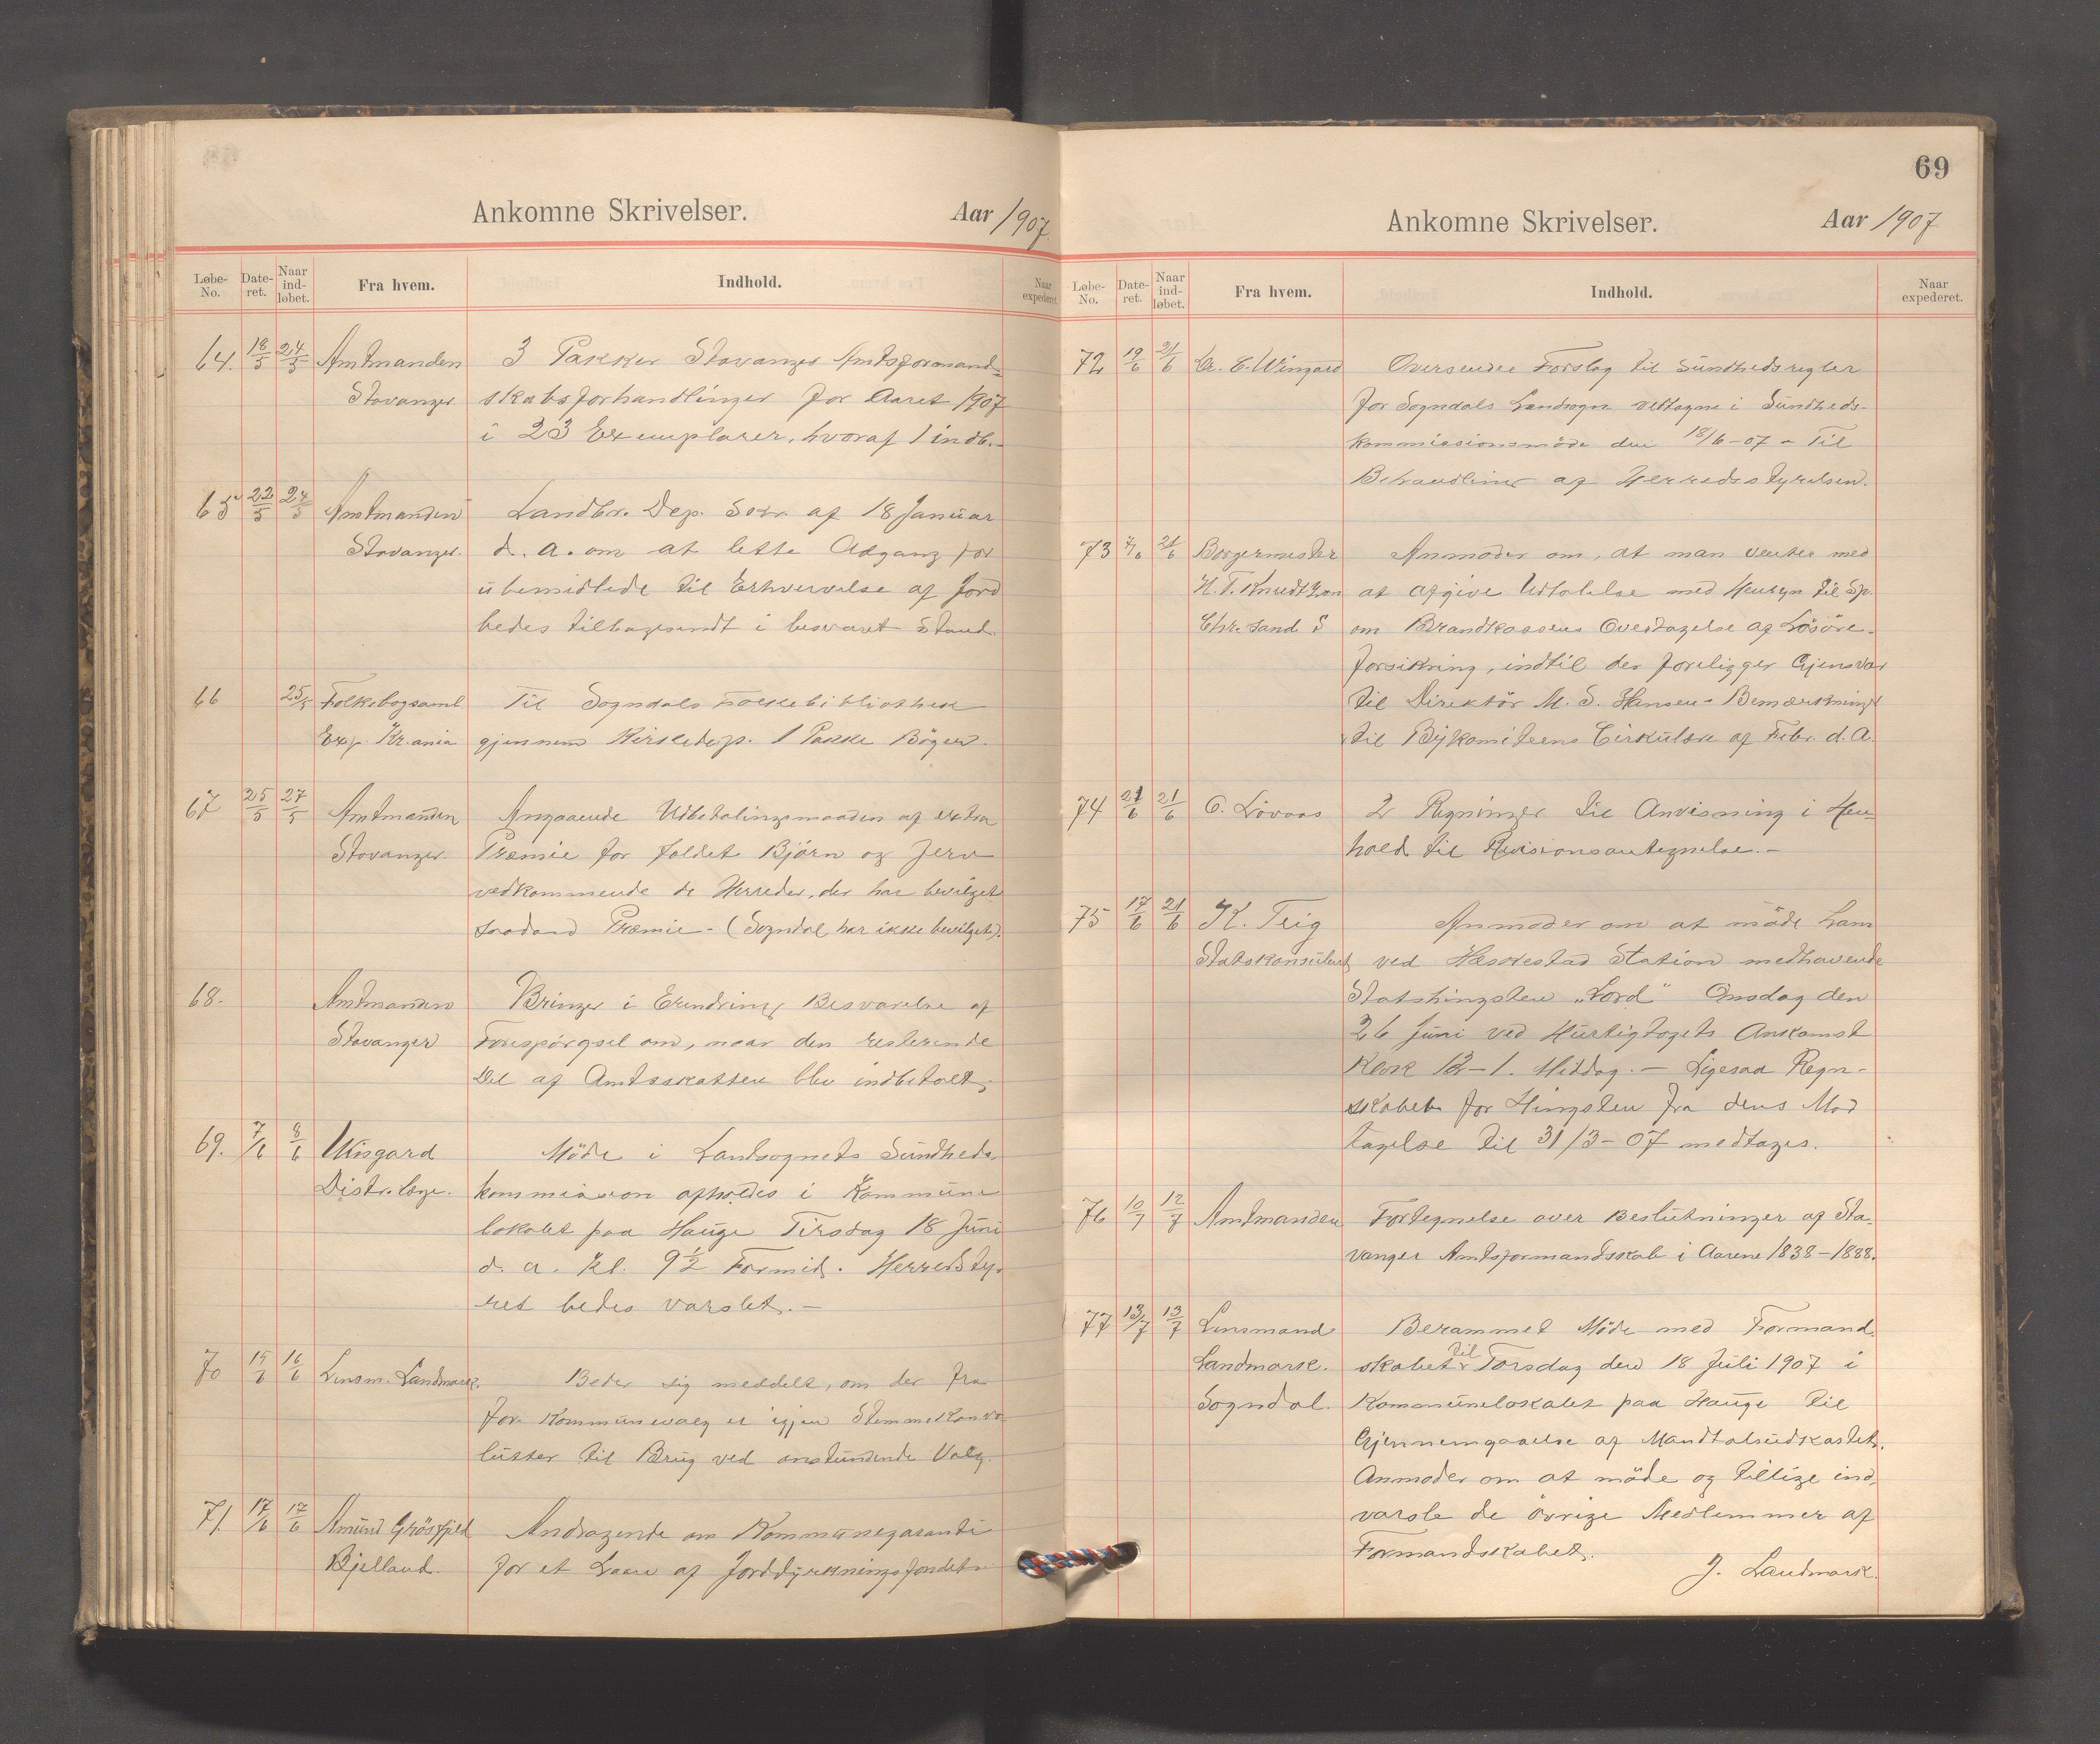 Ankomne Skrivelser. Aar 1907.
Løbe-No. Date-ret. Naar ind-løbet. Fra hvem. Indhold. Naar expederet
64. 18/5 24/5 Amtmanden 3 Pakker Stavanger Amtsformand-
Stavanger skabsforhandlinger for Aaret 1907
i 23 Exemplarer, hvoraf 1 indb.
65 22/5 24/5 Amtmanden Landbr. Dep. Skr. af 18 Januar
Stavanger. d. a. om at lette Adgang for
ubemidlede til Erhvervelse af Jord
bedes tilbagesendt i besvaret Stand.
66 25/5 Folkebogsaml. Til Sogndals Folkebibliothek
Exp. Kr.ania gjennem Kirkedep. 1 Pakke Bøger.
67 25/5 27/5 Amtmanden Angaaende Udbetalingsmaaden af extra
Stavanger. Præmie for fældet Bjørn og Jerv
vedkommende de Herreder, der har bevilget
saadand Præmie - (Sogndal har ikke bevilget).
68. Amtmanden Bringer i Erindring Besvarelse af
Stavanger Forespørgsel om, naar den resterende
Del af Amtsskatten blev indbetalt.
69. 7/6 8/6 Wingard Møde i Landsognets Sundheds-
Distr.læge. kommission afholdes i Kommune
lokalet paa Hauge Tirsdag 18 Juni
d. a. Kl. 9½ Formid. Herredsty-
ret bedes varslet. -
70 15/6 16/6 Lensm. Landmark. Beder sig meddelt, om der fra
for. Kommunevalg er igjen Stemmekonvo-
lutter til Brug ved anstundende Valg.
71. 17/6 17/6 Amund Grøsfjeld Andragende om Kommunegaranti
Bjelland. for et Laan af Jorddyrkningsfondet.
69
Ankomne Skrivelser. Aar 1907.
Løbe-No. Date-ret. Naar ind-løbet. Fra hvem. Indhold. Naar expederet.
72 19/6 21/6 Chr. E. Wingard Oversender Forslag til Sundhedsregler
for Sogndals Landsogn vedtagne i Sundheds-
kommissionsmøde den 18/6-07 - Til
Behandling af Herredsstyrelsen.
73 21/6 Borgermester Anmoder om, at man venter med
H. T. Knudtzon at afgive Udtalelse med Hensyn til Sp.
Chr.sand S om Brandkassens Overtagelse af Løsøre-
forsikring, indtil der foreligger Gjensvar
til Direktør M. S. Hansens Bemærkninger
til Bykomiteens Cirkulære af Febr. d. A.
74 21/6 21/6 O. Løvaas 2 Regninger til Anvisning i Hen-
hold til Revisionsantegnelse. -
75 17/6 21/6 K. Teig Anmoder om at møde ham
Statskonsulent ved Hæskestad Station medhavende
Statshingsten „Lord" Onsdag den
26 Juni ved Hurtigtogets Ankomst
Klok 12-1. Middag. - Ligesaa Regn-
skabet for Hingsten fra dens Mod
tagelse til 31/3-07 medtages.
76 10/7 12/7 Amtmanden Fortegnelse over Beslutninger af Sta-
vanger Amtsformandskab i Aarene 1838-1888.
77 13/7 13/7 Lensmand Berammet Møde med Formand
Landmark. skabet til Torsdag den 18 Juli 1907 i
Sogndal. Kommunelokalet paa Hauge til
Gjennemgaaelse af Mandtalsudkastet.
Anmoder om at møde og tillige ind-
varsle de øvrige Medlemmer af
Formandskabet.
J. Landmark.